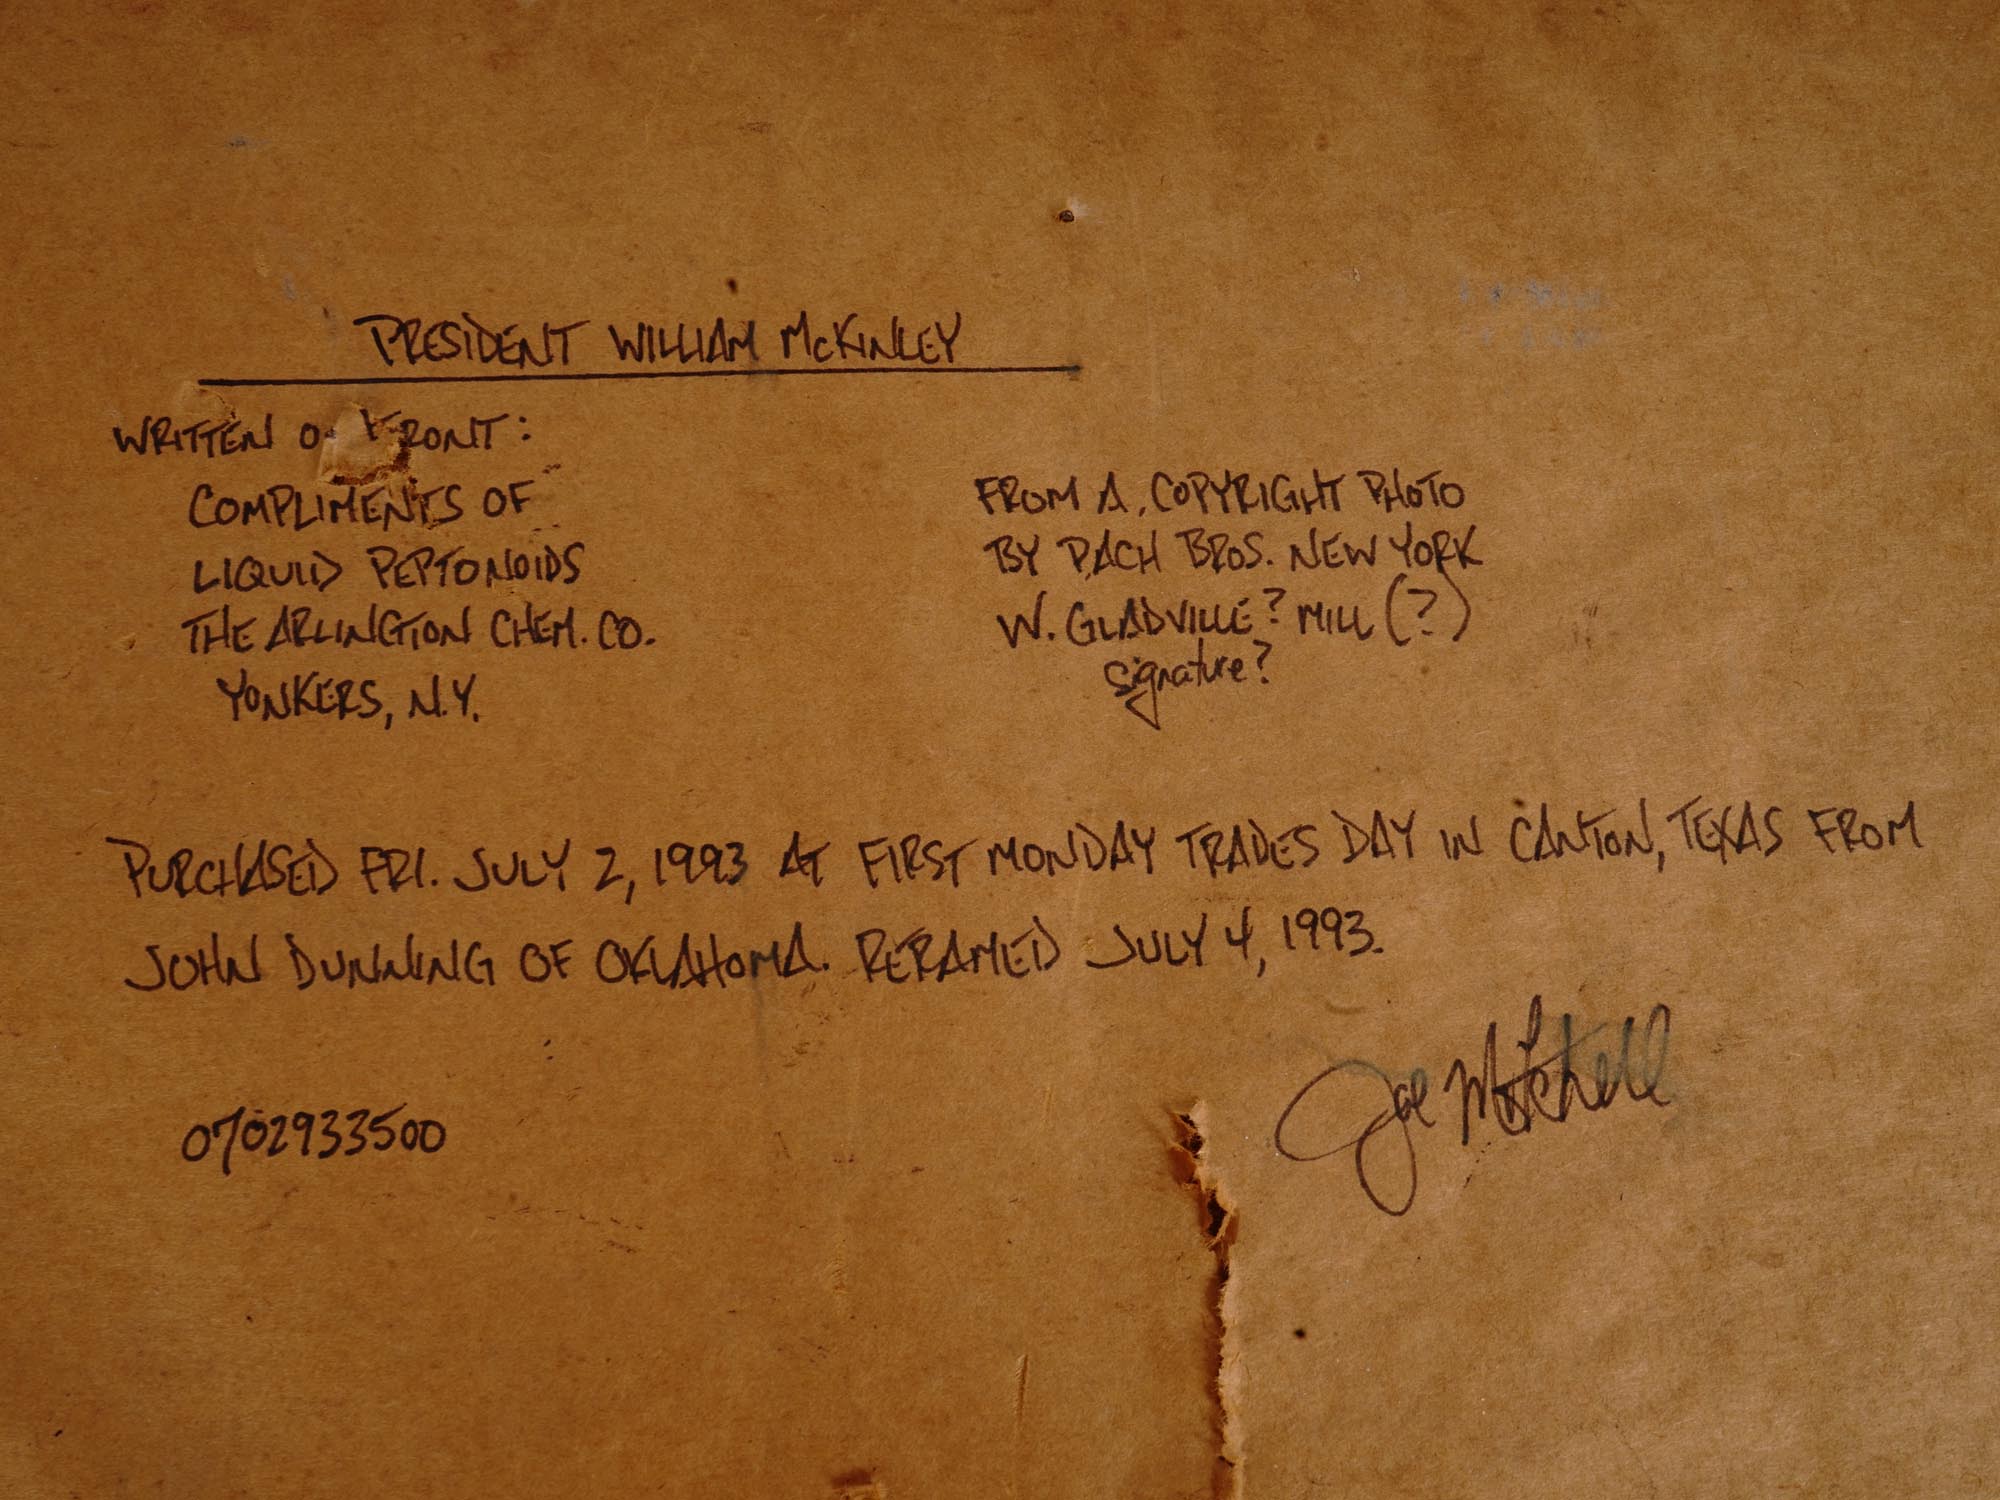 PRESIDENT WILLIAM McKINLEY
WRITTEN FRONT:
COMPLIMENTS OF
LIQUID PEPTONOIDS
THE ARLINGTON CHEM. CO.
YONKERS, N.Y.
FROM A. COPYRIGHT PHOTO
BY PACH BROS. NEW YORK
W. GLADVILLE? MILL (?)
signature?
PURCHASED FRI. JULY 2, 1993 AT FIRST MONDAY TRADES DAY IN CANTON, TEXAS FROM
JOHN DUNNING OF OKLAHOMA. REFRAMED JULY 4, 1993.
Joe Mitchell
0702933500